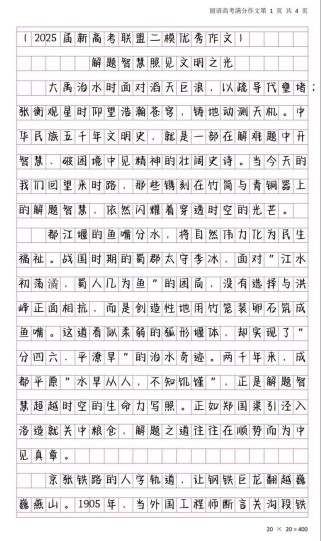 丽语高考满分作文第 1 页 共 4 页
(2025届新高考联盟二模优秀作文)
解题智慧照见文明之光
大禹治水时面对滔天巨浪，以疏导代壅堵；
张衡观星时仰望浩瀚苍穹，铸地动测天机。中
华民族五千年文明史，就是一部在解难题中开
智慧，破困境中见精神的壮阔史诗。当今天的
我们回望来时路，那些镌刻在竹简与青铜器上
的解题智慧，依然闪耀着穿透时空的光芒。
都江堰的鱼嘴分水，将自然伟力化为民生
福祉。战国时期的蜀郡太守李冰，面对“江水
初荡潏，蜀人几为鱼”的困局，没有选择与洪
峰正面相抗，而是创造性地用竹笼装卵石筑成
鱼嘴。这道看似柔弱的弧形堰体，却实现了“
分四六，平潦旱”的治水奇迹。两千年来，成
都平原“水旱从人，不知饥馑”，正是解题智
慧超越时空的生命力写照。正如郑国渠引泾入
洛造就关中粮仓，解题之道往往在顺势而为中
见真章。
京张铁路的人字轨道，让钢铁巨龙翻越巍
巍燕山。1905年，当外国工程师断言关沟段铁
20 × 20 = 400